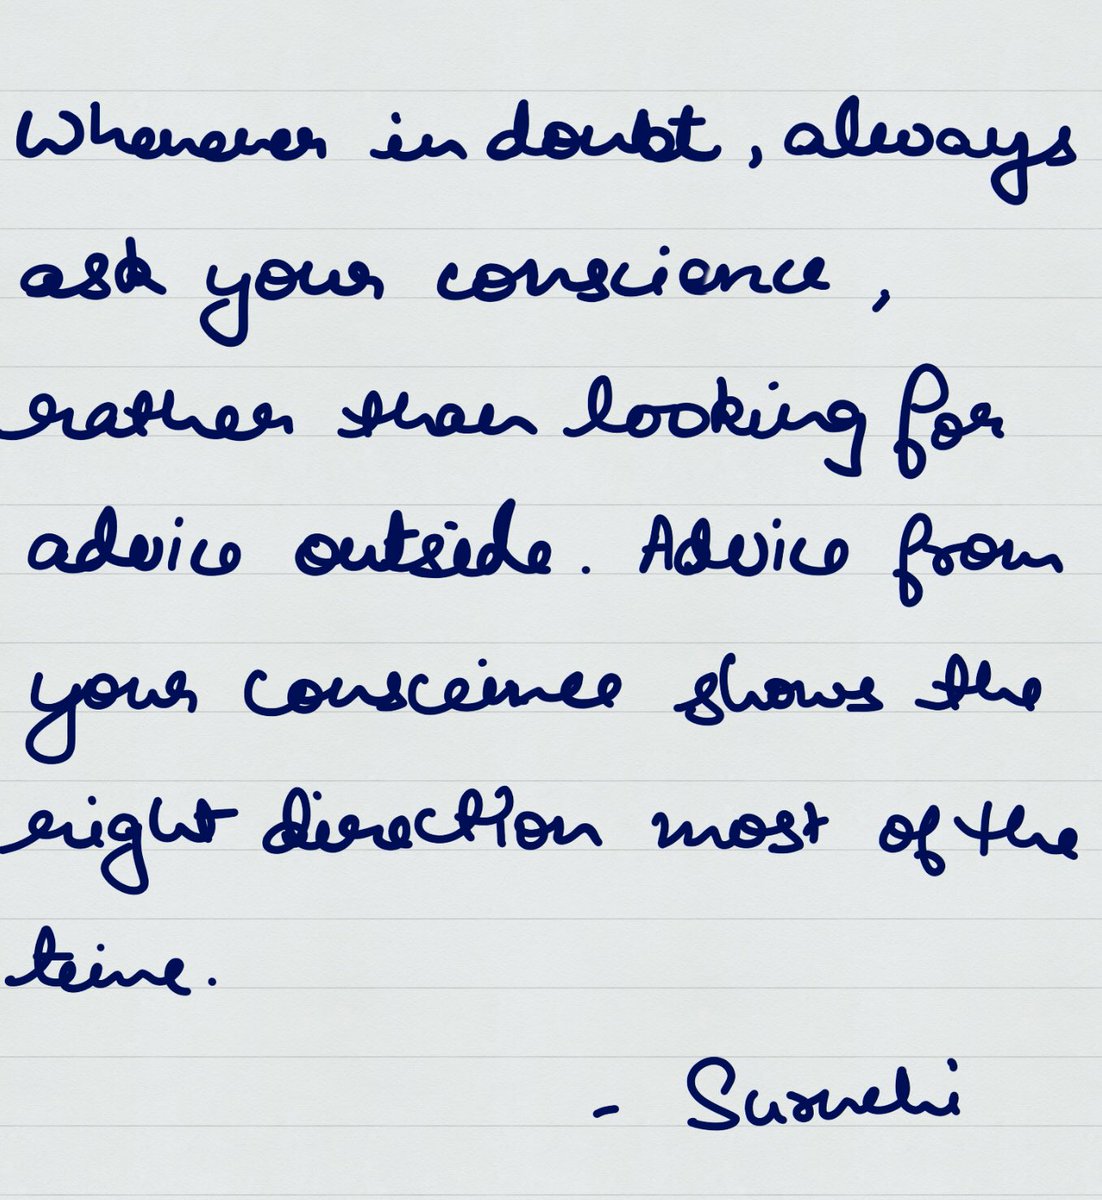 Whenever in doubt, always
ask your conscience,
rather than looking for
advice outside. Advice from
your conscience shows the
right direction most of the
time.
-